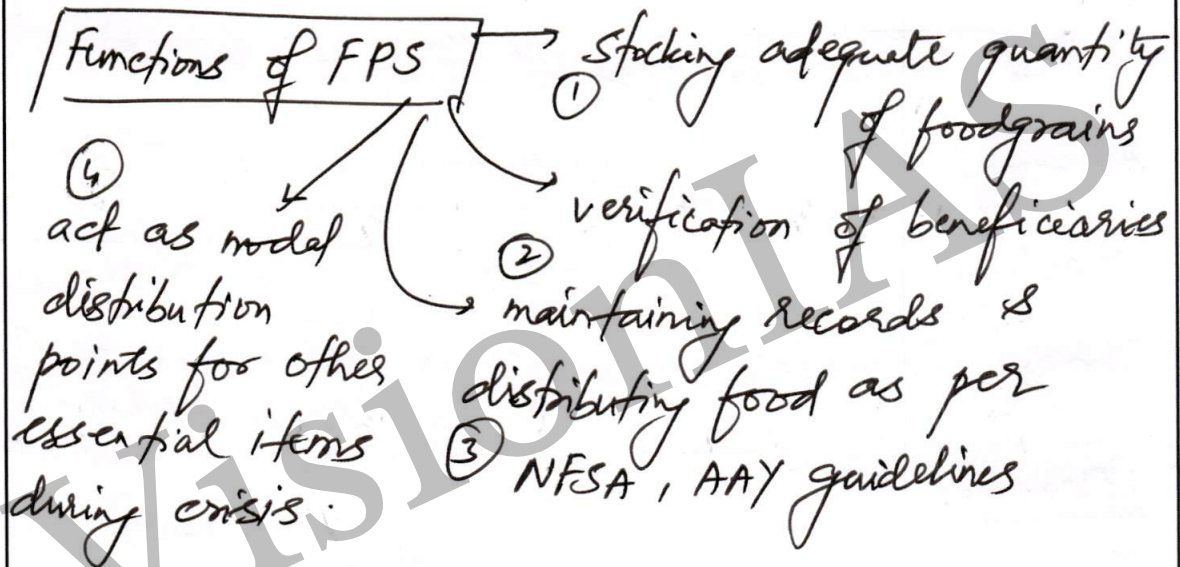 Functions of FPS
① Stocking adequate quantity
of foodgrains
② verification of beneficiaries
③ maintaining records &
distributing food as per
NFSA, AAY guidelines
④
act as nodal
distribution
points for other
essential items
during crisis.
VisionIAS